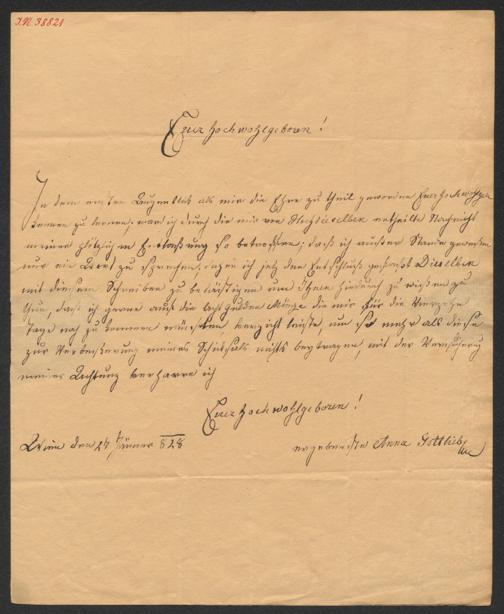 I.N. 38821
Euer Hochwohlgeboren!
In dem ersten Augenblick als mir die Ehre zu theil geworden Euer Hochwohlgb
kennen zu lernen, war ich durch die mir von Hochdieselben ertheilte Nachricht
meiner plötzlichen Entlaßung so betroffen; daß ich außer Stande gewesen
nur ein Wort zu sprechen, habe ich jetz den Entschluß gefaßt Dieselben
mit diesem Schreiben zu belästigen um Ihnen hiedurch zu wißen zu
thun, daß ich gerne auf die acht gulden Münze die mir für die Vierzehn
Tage noch zu kommen müßten verzicht leiste, um so mehr als diese
zur Verbeßerung meines Schicksals nichts beytragen, mit der Versicherung
meiner Achtung verharre ich
Euer Hochwohlgeboren!
Wien den 24 Jänner 828
ergebenste Anna Gottlieb